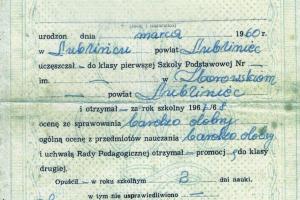 urodzon dnia marca 1960 r.
w Lublińcu powiat Lubliniec
uczęszczał do klasy pierwszej Szkoły Podstawowej Nr
im. w
powiat Lubliniec
i otrzymał za rok szkolny 1967/68
ocenę ze sprawowania bardzo dobry
ogólną ocenę z przedmiotów nauczania bardzo dobry
i uchwałą Rady Pedagogicznej otrzymał promocję do klasy
drugiej.
Opuścił w roku szkolnym 3 dni nauki.
w tym nie usprawiedliwiono